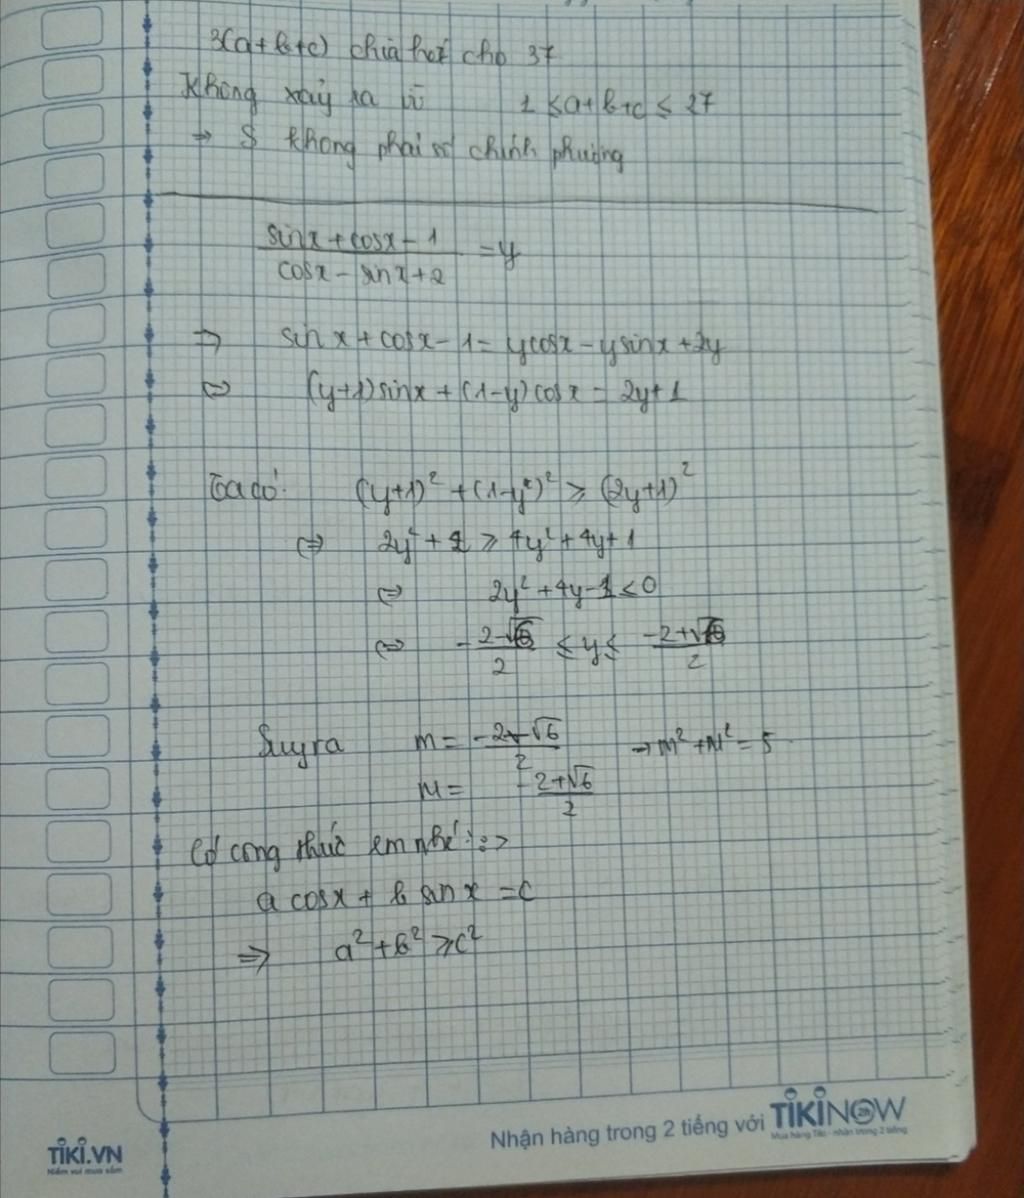 3(a+b+c) chia hết cho 37
Không xảy ra vì 1 ≤ a+b+c ≤ 27
→ S không phải số chính phương
(sinx + cosx - 1)/(cosx - sinx + 2) = y
⇒ sinx + cosx - 1 = ycosx - ysinx + 2y
⇔ (y+1)sinx + (1-y)cosx = 2y+1
Ta có: (y+1)² + (1-y)² ≥ (2y+1)²
⇔ 2y² + 2 ≥ 4y² + 4y + 1
⇔ 2y² + 4y - 1 ≤ 0
⇔ (-2-√6)/2 ≤ y ≤ (-2+√6)/2
Suy ra m = (-2-√6)/2 → m² + M² = 5
M = (-2+√6)/2
Có công thức em nhé :>
a cosx + b sinx = c
⇒ a² + b² ≥ c²
Nhận hàng trong 2 tiếng với TIKINOW
Mua hàng Tiki - nhận trong 2 tiếng
TIKI.VN
Niềm vui mua sắm